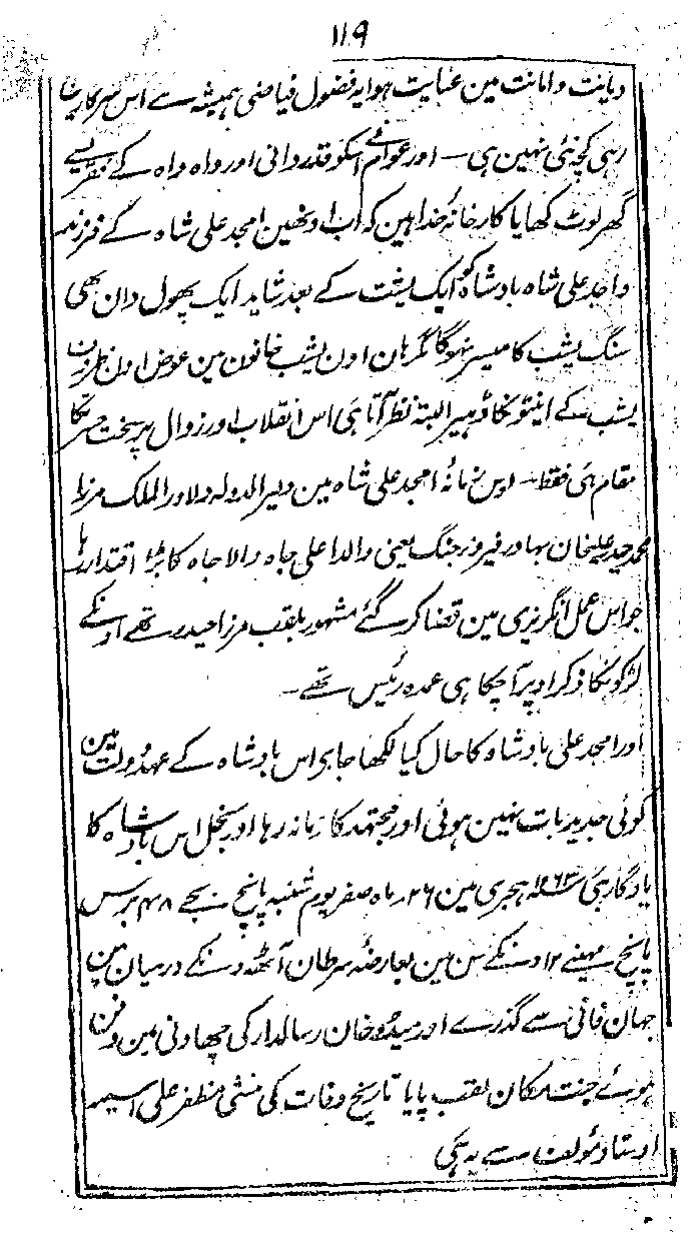 ۱۱۹
دیانت و امانت مین عنایت ہوا یہ فضول فیاضی ہمیشہ سے اس سرکار مین
رہی کچھ نئی نہین ہی۔ اور عوام نے اسکو قدردانی اور واہ واہ کے فقریسے
گھر لوٹ کھایا کارخانۂ خدا ہین کہ اب اونھین امجد علی شاہ کے فرزند
واجد علی شاہ بادشاہ کو ایک پشت کے بعد شاید ایک پھول دان بھی
سنگ یشب کا میسر نہوگا مگر ہان اون یشب خانون مین عوض اون ظروف
یشب کے اینٹونکا ڈہیر البتہ نظر آتا ہی اس انقلاب اور زوال پر سخت حسرتکا
مقام ہی فقط۔ اوس زمانۂ امجد علی شاہ مین دبیر الدولہ دلاور الملک مرزا
محمد حیدر علیخان بہادر فیروز جنگ یعنی والد اعلی جاہ والا جاہ کا بڑا اقتدار رہا
جو اس عمل انگریزی مین قضا کر گئے مشہور بلقب مرزا حیدر تھے اونکے
لڑکونکا ذکر اوپر آچکا ہی عمدہ رئیس تھے۔
اور امجد علی بادشاہ کا حال کیا لکھا جاے اس بادشاہ کے عہد دولت مین
کوئی جدید بات نہین ہوئی اور مجتہد کا زمانہ رہا اور بخل اس بادشاہ کا
یادگار ہی ۱۲۶۳ ہجری مین ۲۶ ماہ صفر یوم شنبہ پانچ بجے ۴۸ برس
پانچ مہینے ۱۲ دنکے سن مین بعارضۂ سرطان آٹھ دنکے درمیان مین
جہان فانی سے گذرے اور میڈو خان رسالدار کی چھاونی مین دفن
ہوے جنت مکان لقب پایا تاریخ وفات کی منشی مظفر علی اسیر
اوستاد مؤلف سے یہ ہی